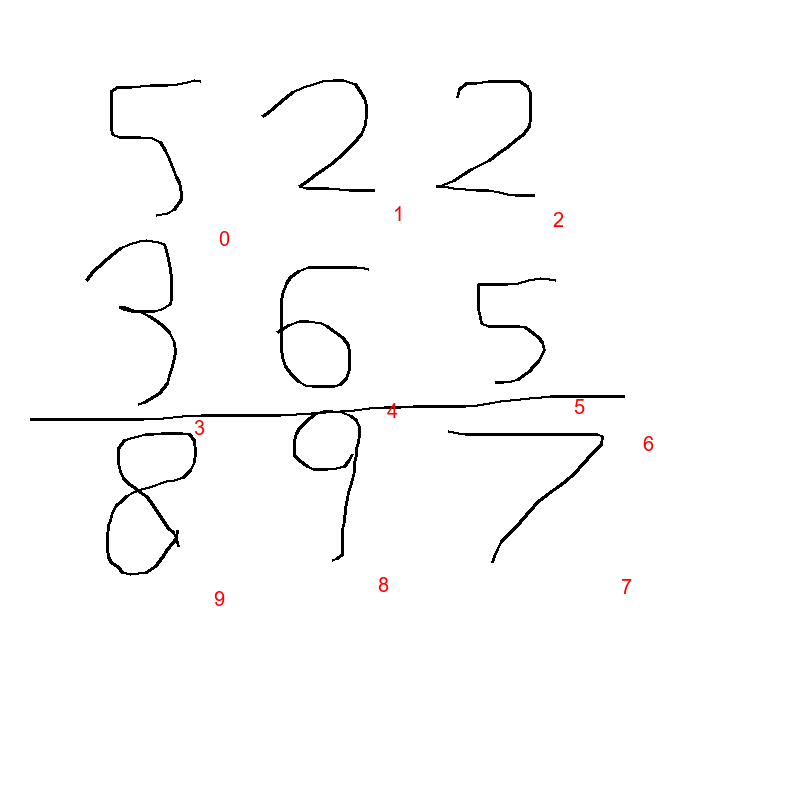 522
0 1 2
365
3 4 5
6
897
9 8 7